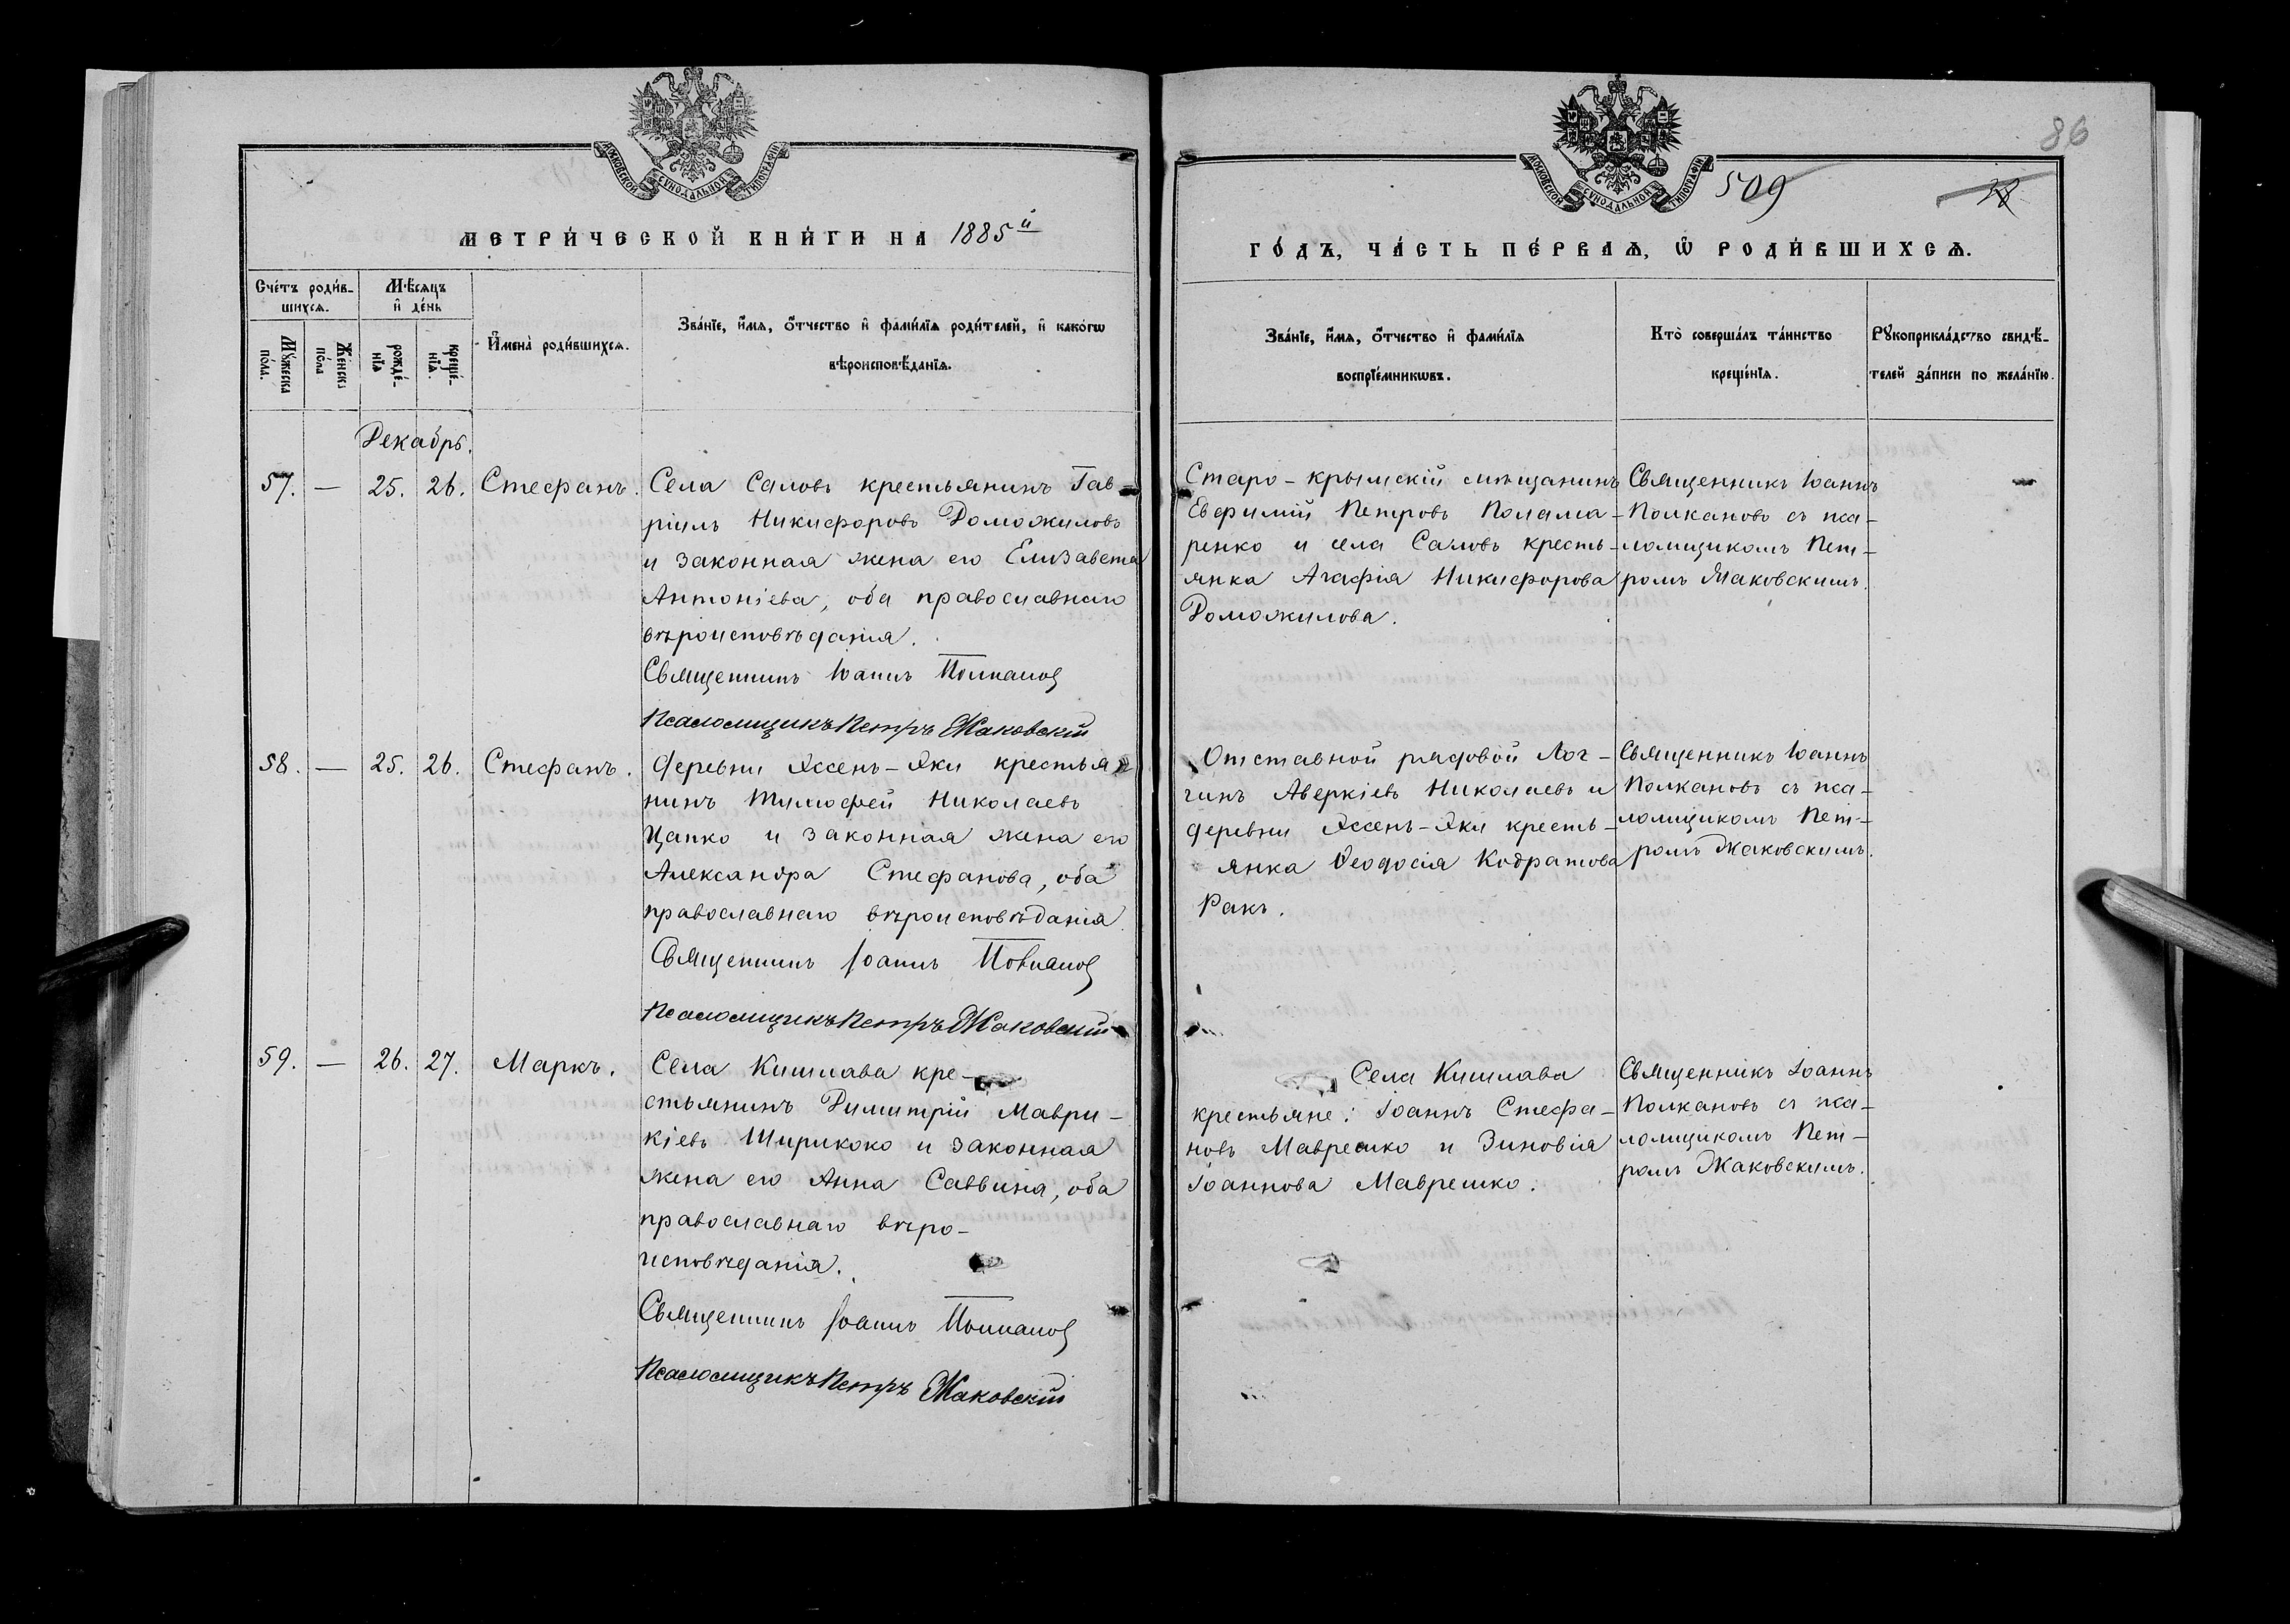 86
МОСКОВСКОЙ СУНОДАЛЬНОЙ ТИПОГРАФІИ
МОСКОВСКОЙ СУНОДАЛЬНОЙ ТИПОГРАФІИ
509
МЕТРИ́ЧЕСКОЙ КНИ́ГИ НА 1885й
ГО́ДЪ, ЧА́СТЬ ПЕ́РВАѦ, Ѿ РОДИ́ВШИХСѦ.
Сче́тъ роди́в-
шихсѧ.
Мѣ́сяцъ
и҆ де́нь
Мꙋ́жеска по́ла.
Же́нска по́ла
рожде́-нїѧ
креще́-нїѧ.
И҆мена̀ роди́вшихсѧ.
Зва́нїе, и҆́мѧ, ѻ҆́тчество и҆ фами́лїѧ роди́телей, и҆ како́гѡ
вѣроисповѣ́данїѧ.
Зва́нїе, и҆́мѧ, ѻ҆́тчество и҆ фами́лїѧ
воспрїе́мникѡвъ.
Кто̀ соверша́лъ та́инство
креще́нїѧ.
Рꙋкоприкла́дство свидѣ́-
телей за́писи по жела́нїю.
Декабрь.
57. — 25. 26. Стефанъ.
Села Саловъ крестьянинъ Гав-
ріилъ Никифоровъ Доможиловъ
и законная жена его Елизавета
Антоніева, оба православнаго
вѣроисповѣданія.
Священникъ Іоаннъ Полкановъ
Псаломщикъ Петръ Жаковскій
Старо-крымскій мѣщанинъ
Евфимій Петровъ Полама-
ренко и села Саловъ кресть-
янка Агафія Никифорова
Доможилова.
Священникъ Іоаннъ
Полкановъ съ пса-
ломщикомъ Пет-
ромъ Жаковскимъ.
58. — 25. 26. Стефанъ.
деревни Яссенъ-Яки крестья-
нинъ Тимофей Николаевъ
Цапко и законная жена его
Александра Стефанова, оба
православнаго вѣроисповѣданія.
Священникъ Іоаннъ Полкановъ
Псаломщикъ Петръ Жаковскій
Отставной рядовой Лог-
гинъ Аверкіевъ Николаевъ и
деревни Яссенъ-Яки кресть-
янка Ѳеодосія Кодратова
Ракъ.
Священникъ Іоаннъ
Полкановъ съ пса-
ломщикомъ Пет-
ромъ Жаковскимъ.
59. — 26. 27. Маркъ.
Села Кишлава кре-
стьянинъ Димитрій Маври-
кіевъ Ширикоко и законная
жена его Анна Саввина, оба
православнаго вѣро-
исповѣданія.
Священникъ Іоаннъ Полкановъ
Псаломщикъ Петръ Жаковскій
Села Кишлава
крестьяне: Іоаннъ Стефа-
новъ Маврешко и Зиновія
Іоаннова Маврешко.
Священникъ Іоаннъ
Полкановъ съ пса-
ломщикомъ Пет-
ромъ Жаковскимъ.